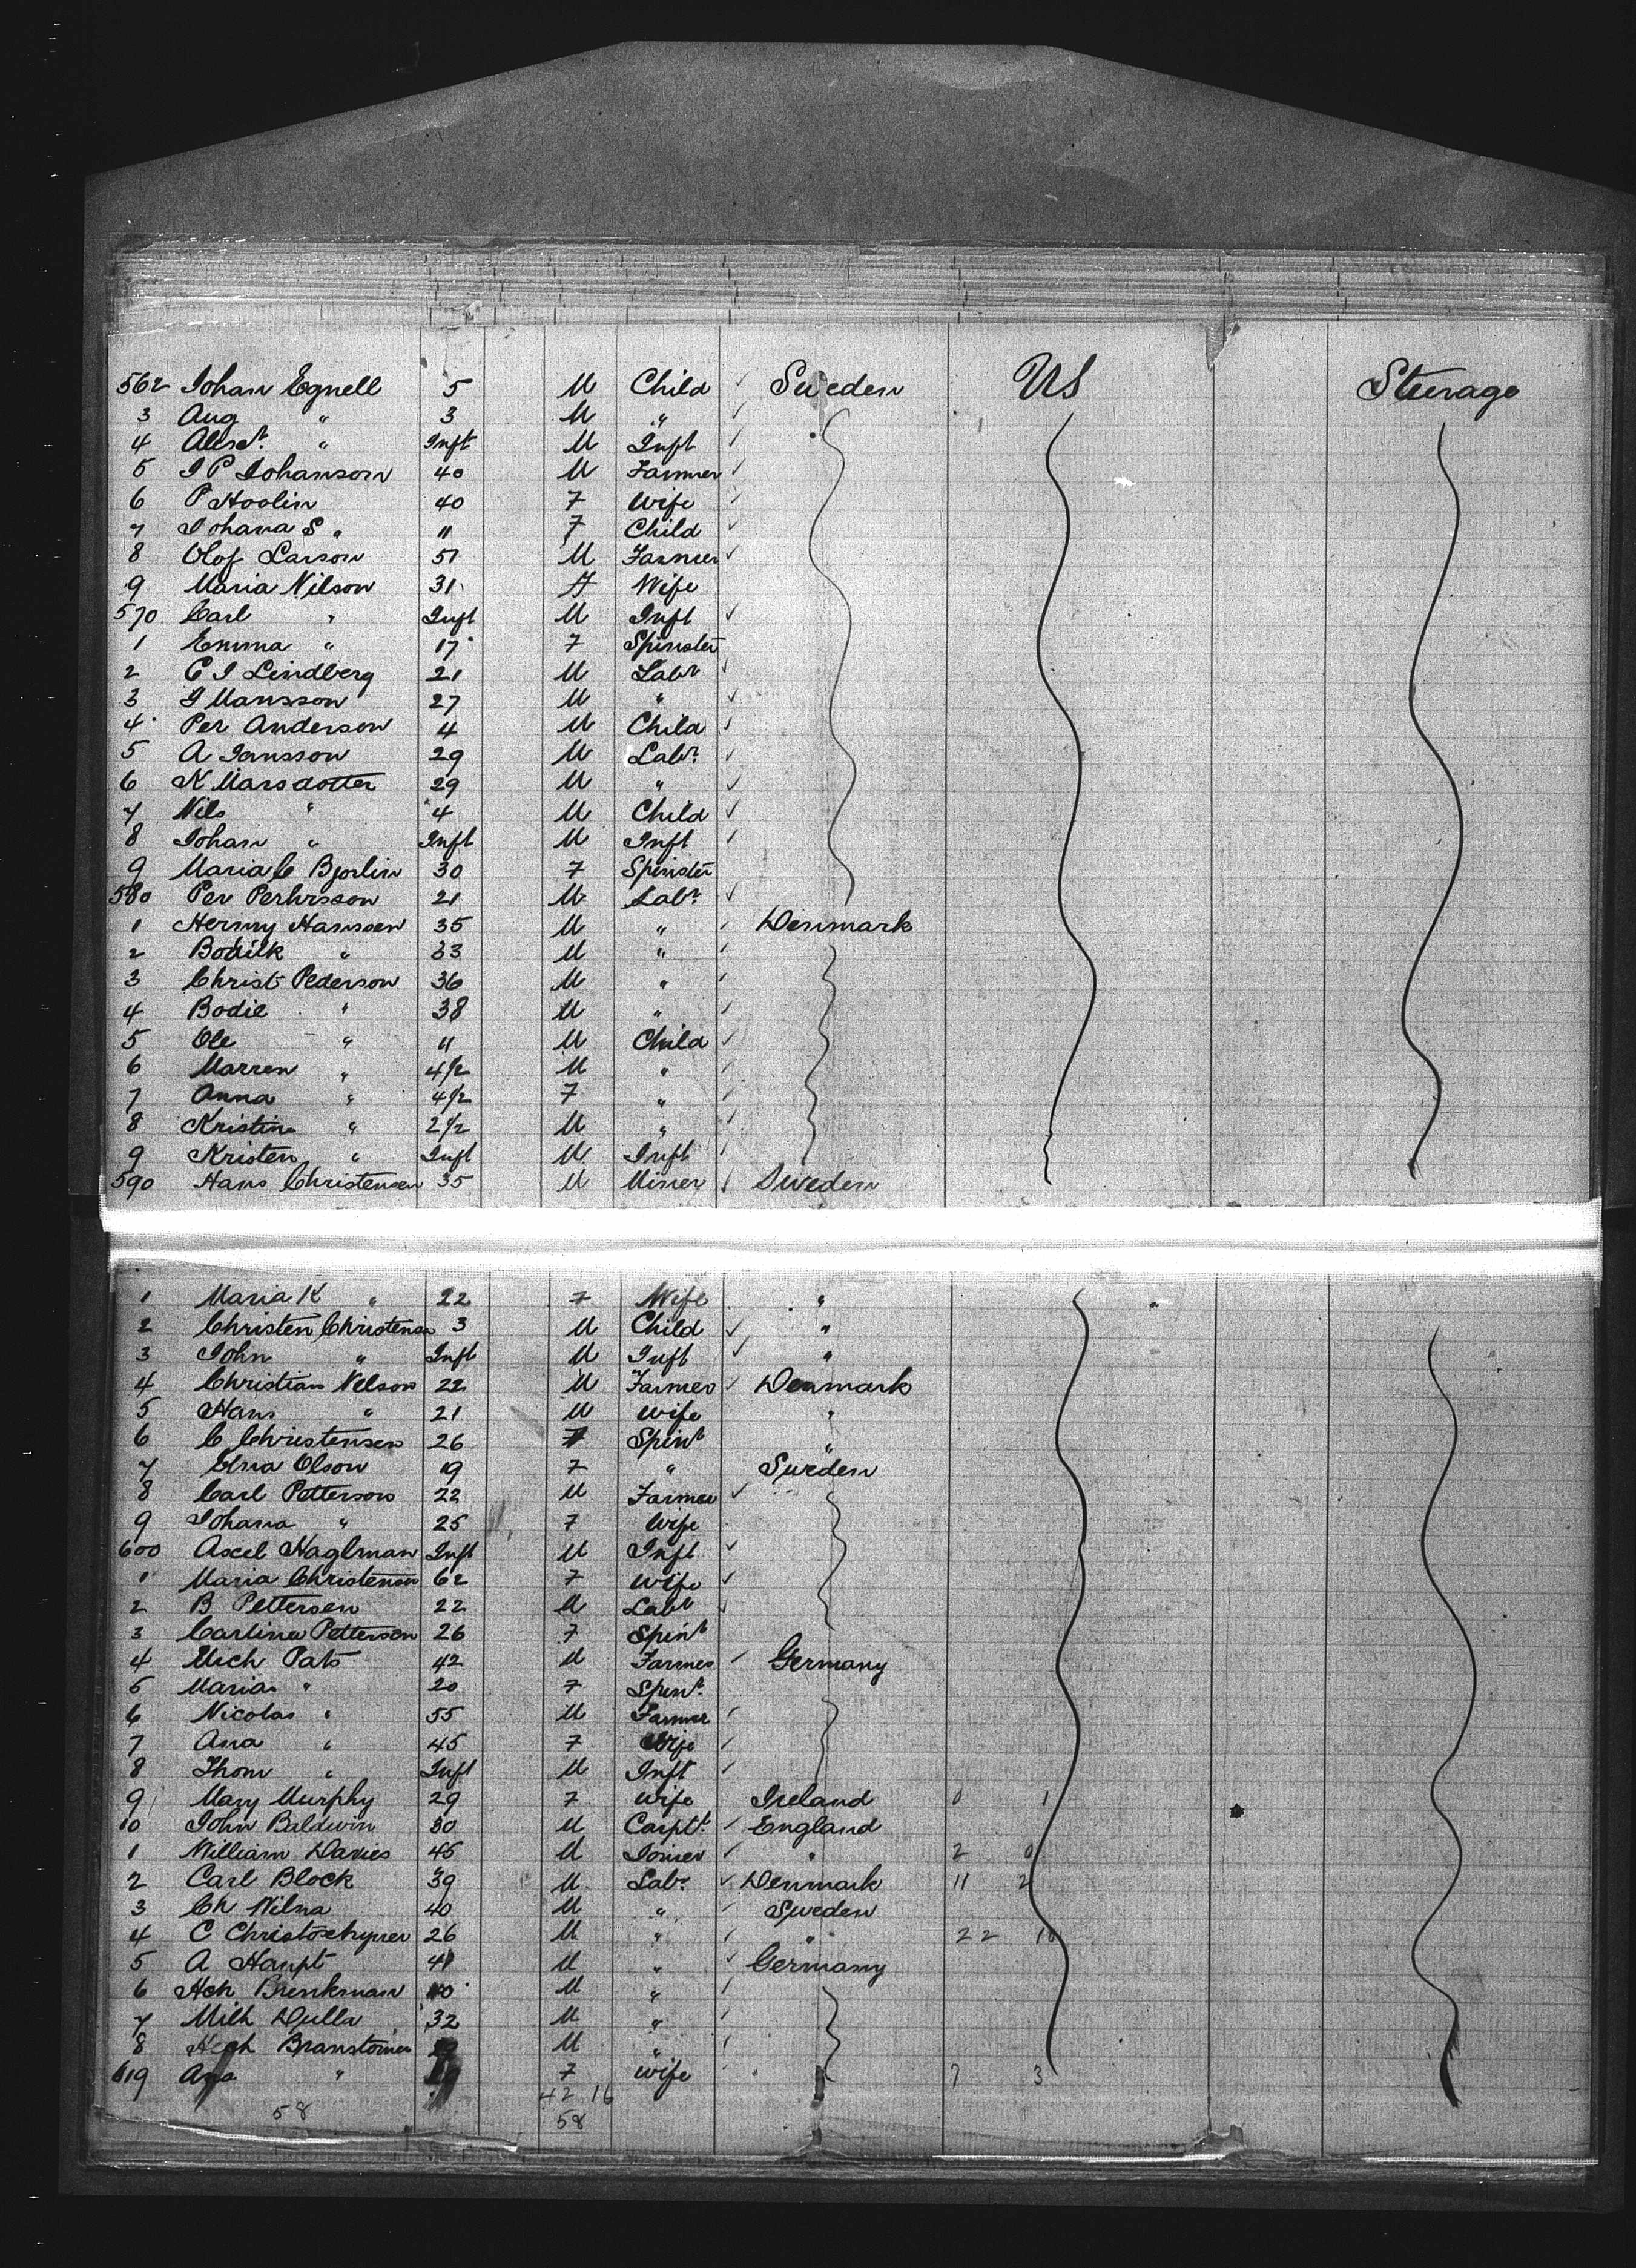 562 Johan Egnell 5 M Child ✓ Sweden US Steerage
3 Aug " 3 M " ✓
4 Alext. " Inft M Inft ✓
5 J P Johanson 40 M Farmer ✓
6 P Hoolin 40 F Wife ✓
7 Johana S " 11 F Child ✓
8 Olof Larson 51 M Farmer ✓
9 Maria Nilson 31 F Wife
570 Carl " Inft M Inft ✓
1 Emma " 17 F Spinster
2 C J Lindberg 21 M Labr ✓
3 J Mansson 27 M " ✓
4 Per Anderson 4 M Child ✓
5 A Jansson 29 M Labr ✓
6 K Marsdotter 29 M " ✓
7 Nils " 4 M Child ✓
8 Johan " Inft M Inft ✓
9 Maria C Bjorlin 30 F Spinster
580 Per Perhrsson 21 M Labr ✓
1 Hermy Hanssen 35 M " ✓ Denmark
2 Bodilk " 33 M " ✓
3 Christ Pederson 36 M " ✓
4 Bodie " 38 M " ✓
5 Ole " 11 M Child ✓
6 Marren " 4 1/2 M " ✓
7 Anna " 4 1/2 F " ✓
8 Kristine " 2 1/2 M " ✓
9 Kristen " Inft M Inft ✓
590 Hans Christensen 35 M Miner ✓ Sweden
1 Maria K " 22 F Wife "
2 Christen Christensen 3 M Child ✓ "
3 John " Inft M Inft ✓ "
4 Christian Nelson 22 M Farmer ✓ Denmark
5 Hans " 21 M Wife "
6 C Christensen 26 F Spinr "
7 Elna Olson 19 F " Sweden
8 Carl Petterson 22 M Farmer ✓
9 Johana " 25 F Wife
600 Axel Haglman Inft M Inft ✓
1 Maria Christenson 62 F Wife ✓
2 B Pettersen 22 M Labr ✓
3 Carlina Petterson 26 F Spinr
4 Mich Pats 42 M Farmer ✓ Germany
5 Maria " 20 F Spinr
6 Nicolas " 55 M Farmer ✓
7 Ana " 45 F Wife ✓
8 Thom " Inft M Inft ✓
9 Mary Murphy 29 F Wife Ireland 0 1
10 John Baldwin 30 M Carptr ✓ England
1 William Davies 45 M Joiner ✓ " 2 0
2 Carl Block 39 M Labr ✓ Denmark 11 2
3 Ch Wilna 40 M " ✓ Sweden
4 C 26 M " ✓ " 22 10
5 A Haupt 41 M " ✓ Germany
6 Hch Brinkman M " ✓
7 Milh Dulla 32 M " ✓
8 M " ✓
619 Ana " F Wife 7 3
42 16
58 58